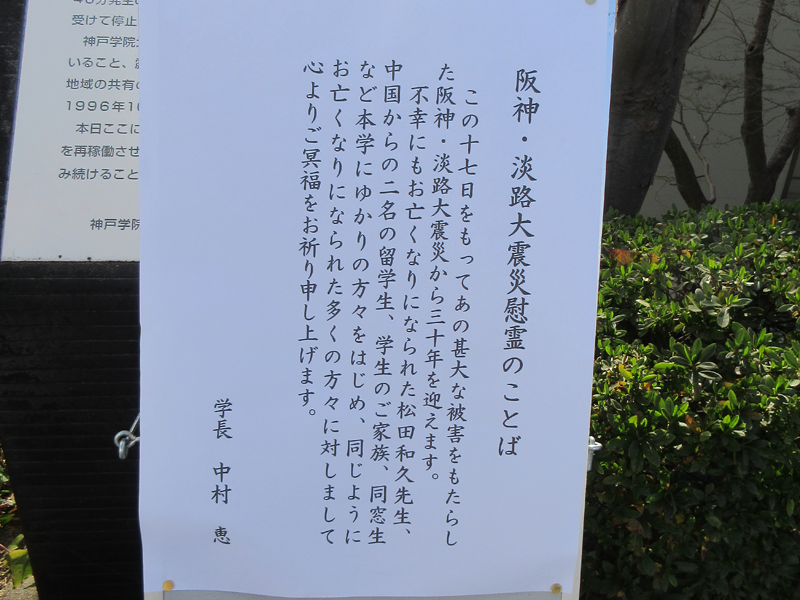 阪神・淡路大震災慰霊のことば
この十七日をもってあの甚大な被害をもたらし
た阪神・淡路大震災から三十年を迎えます。
不幸にもお亡くなりになられた松田和久先生、
中国からの二名の留学生、学生のご家族、同窓生
など本学にゆかりの方々をはじめ、同じように
お亡くなりになられた多くの方々に対しまして
心よりご冥福をお祈り申し上げます。
学長 中村 恵
受けて停止
神戸学院
いること、
地域の共有
1996年1
本日ここに
を再稼働させ
み続けること
神戸学院